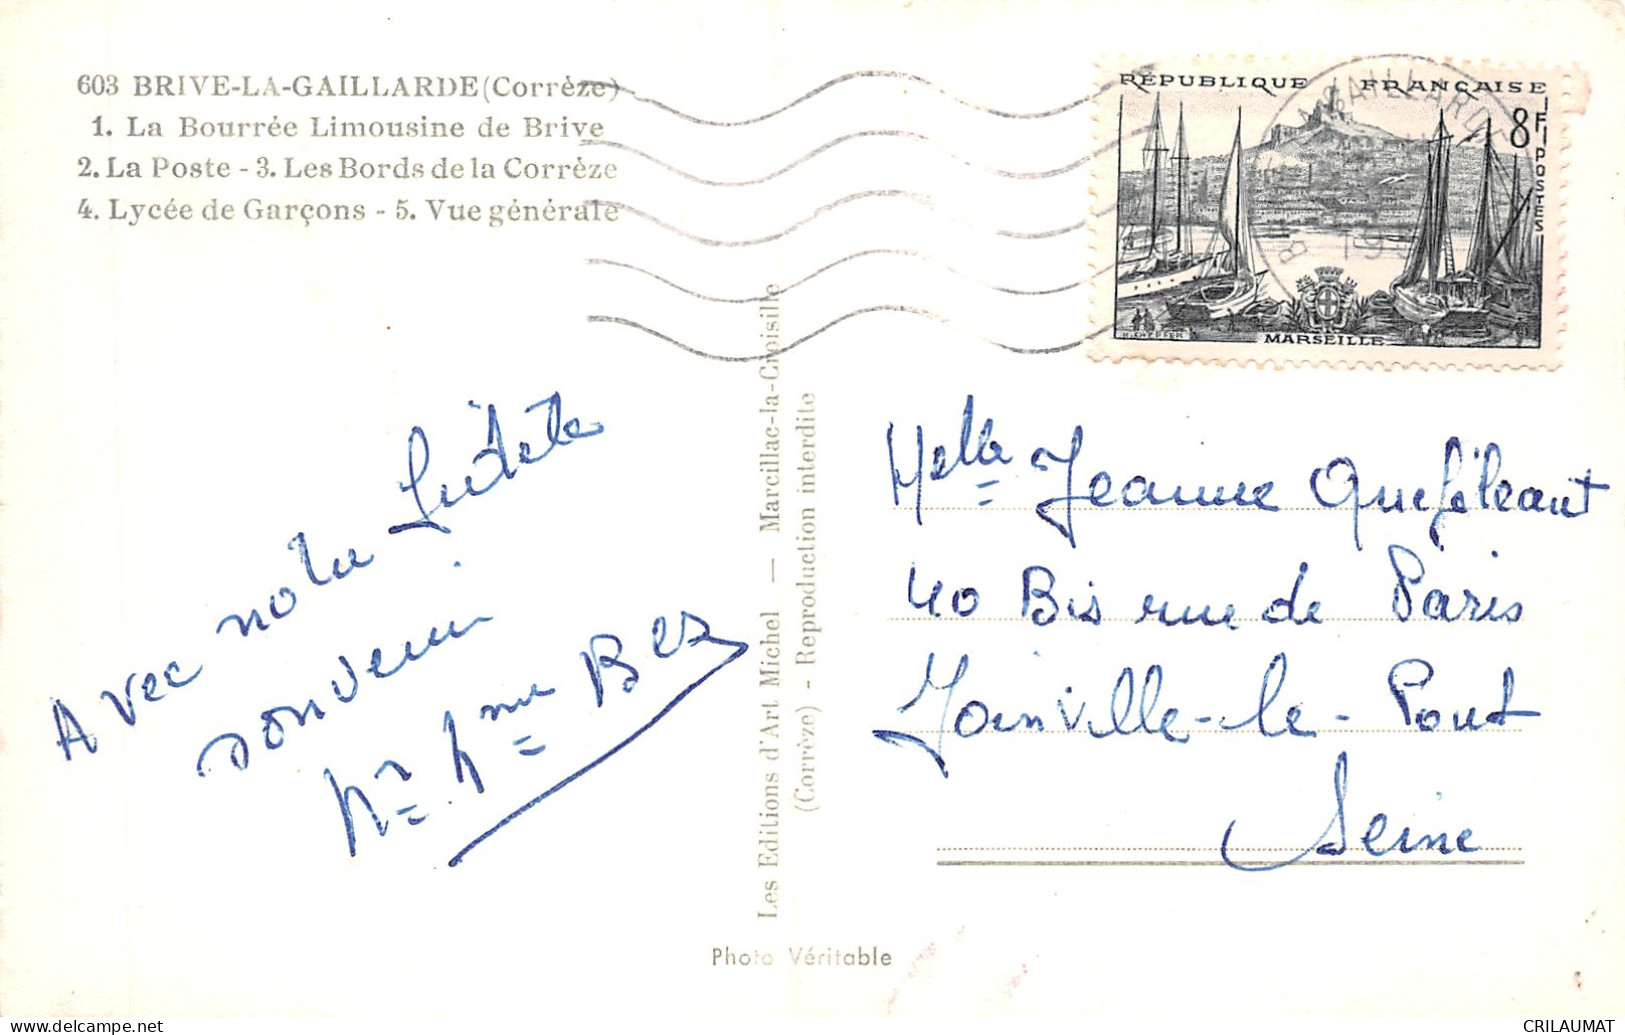 603 BRIVE-LA-GAILLARDE (Corrèze)
1. La Bourrée Limousine de Brive
2. La Poste - 3. Les Bords de la Corrèze
4. Lycée de Garçons - 5. Vue générale
RÉPUBLIQUE FRANÇAISE
8F
POSTES
MARSEILLE
GAILLARDE
Avec notre fidèle
souvenir
Mr Mme Bez
Les Editions d'Art Michel — Marcillac-la-Croisille
(Corrèze) - Reproduction interdite
Melle Jeanne Queféleant
40 Bis rue de Paris
Joinville-le-Pont
Seine
Photo Véritable
CRILAUMAT